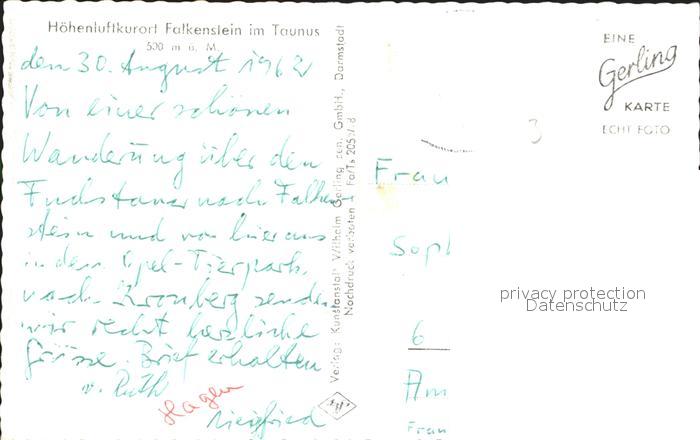 Höhenluftkurort Falkenstein im Taunus
500 m ü. M.
den 30. August 1962
Von einer schönen
Wanderung über den
Fuchstanz nach Falken
stein und von hier aus
in den Opel-Tierpark
nach Kronberg senden
wir recht herzliche
Grüsse. Brief erhalten
v. Ruth
Hagen
Siegfried
Verlag: Kunstanstalt Wilhelm Gerling sen. GmbH., Darmstadt
Nachdruck verboten
EINE
Gerling
KARTE
ECHT FOTO
3
Frau
Soph
6
Am
Fran
privacy protection
Datenschutz